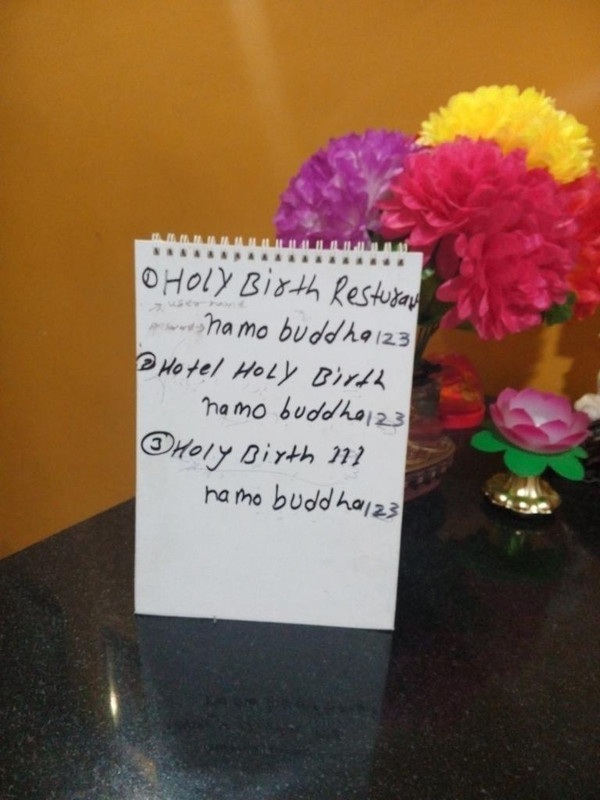 ① HOLY Birth Resturant
user name
namo buddha123
② Hotel HOLY Birth
namo buddha123
③ Holy Birth III
namo buddha123